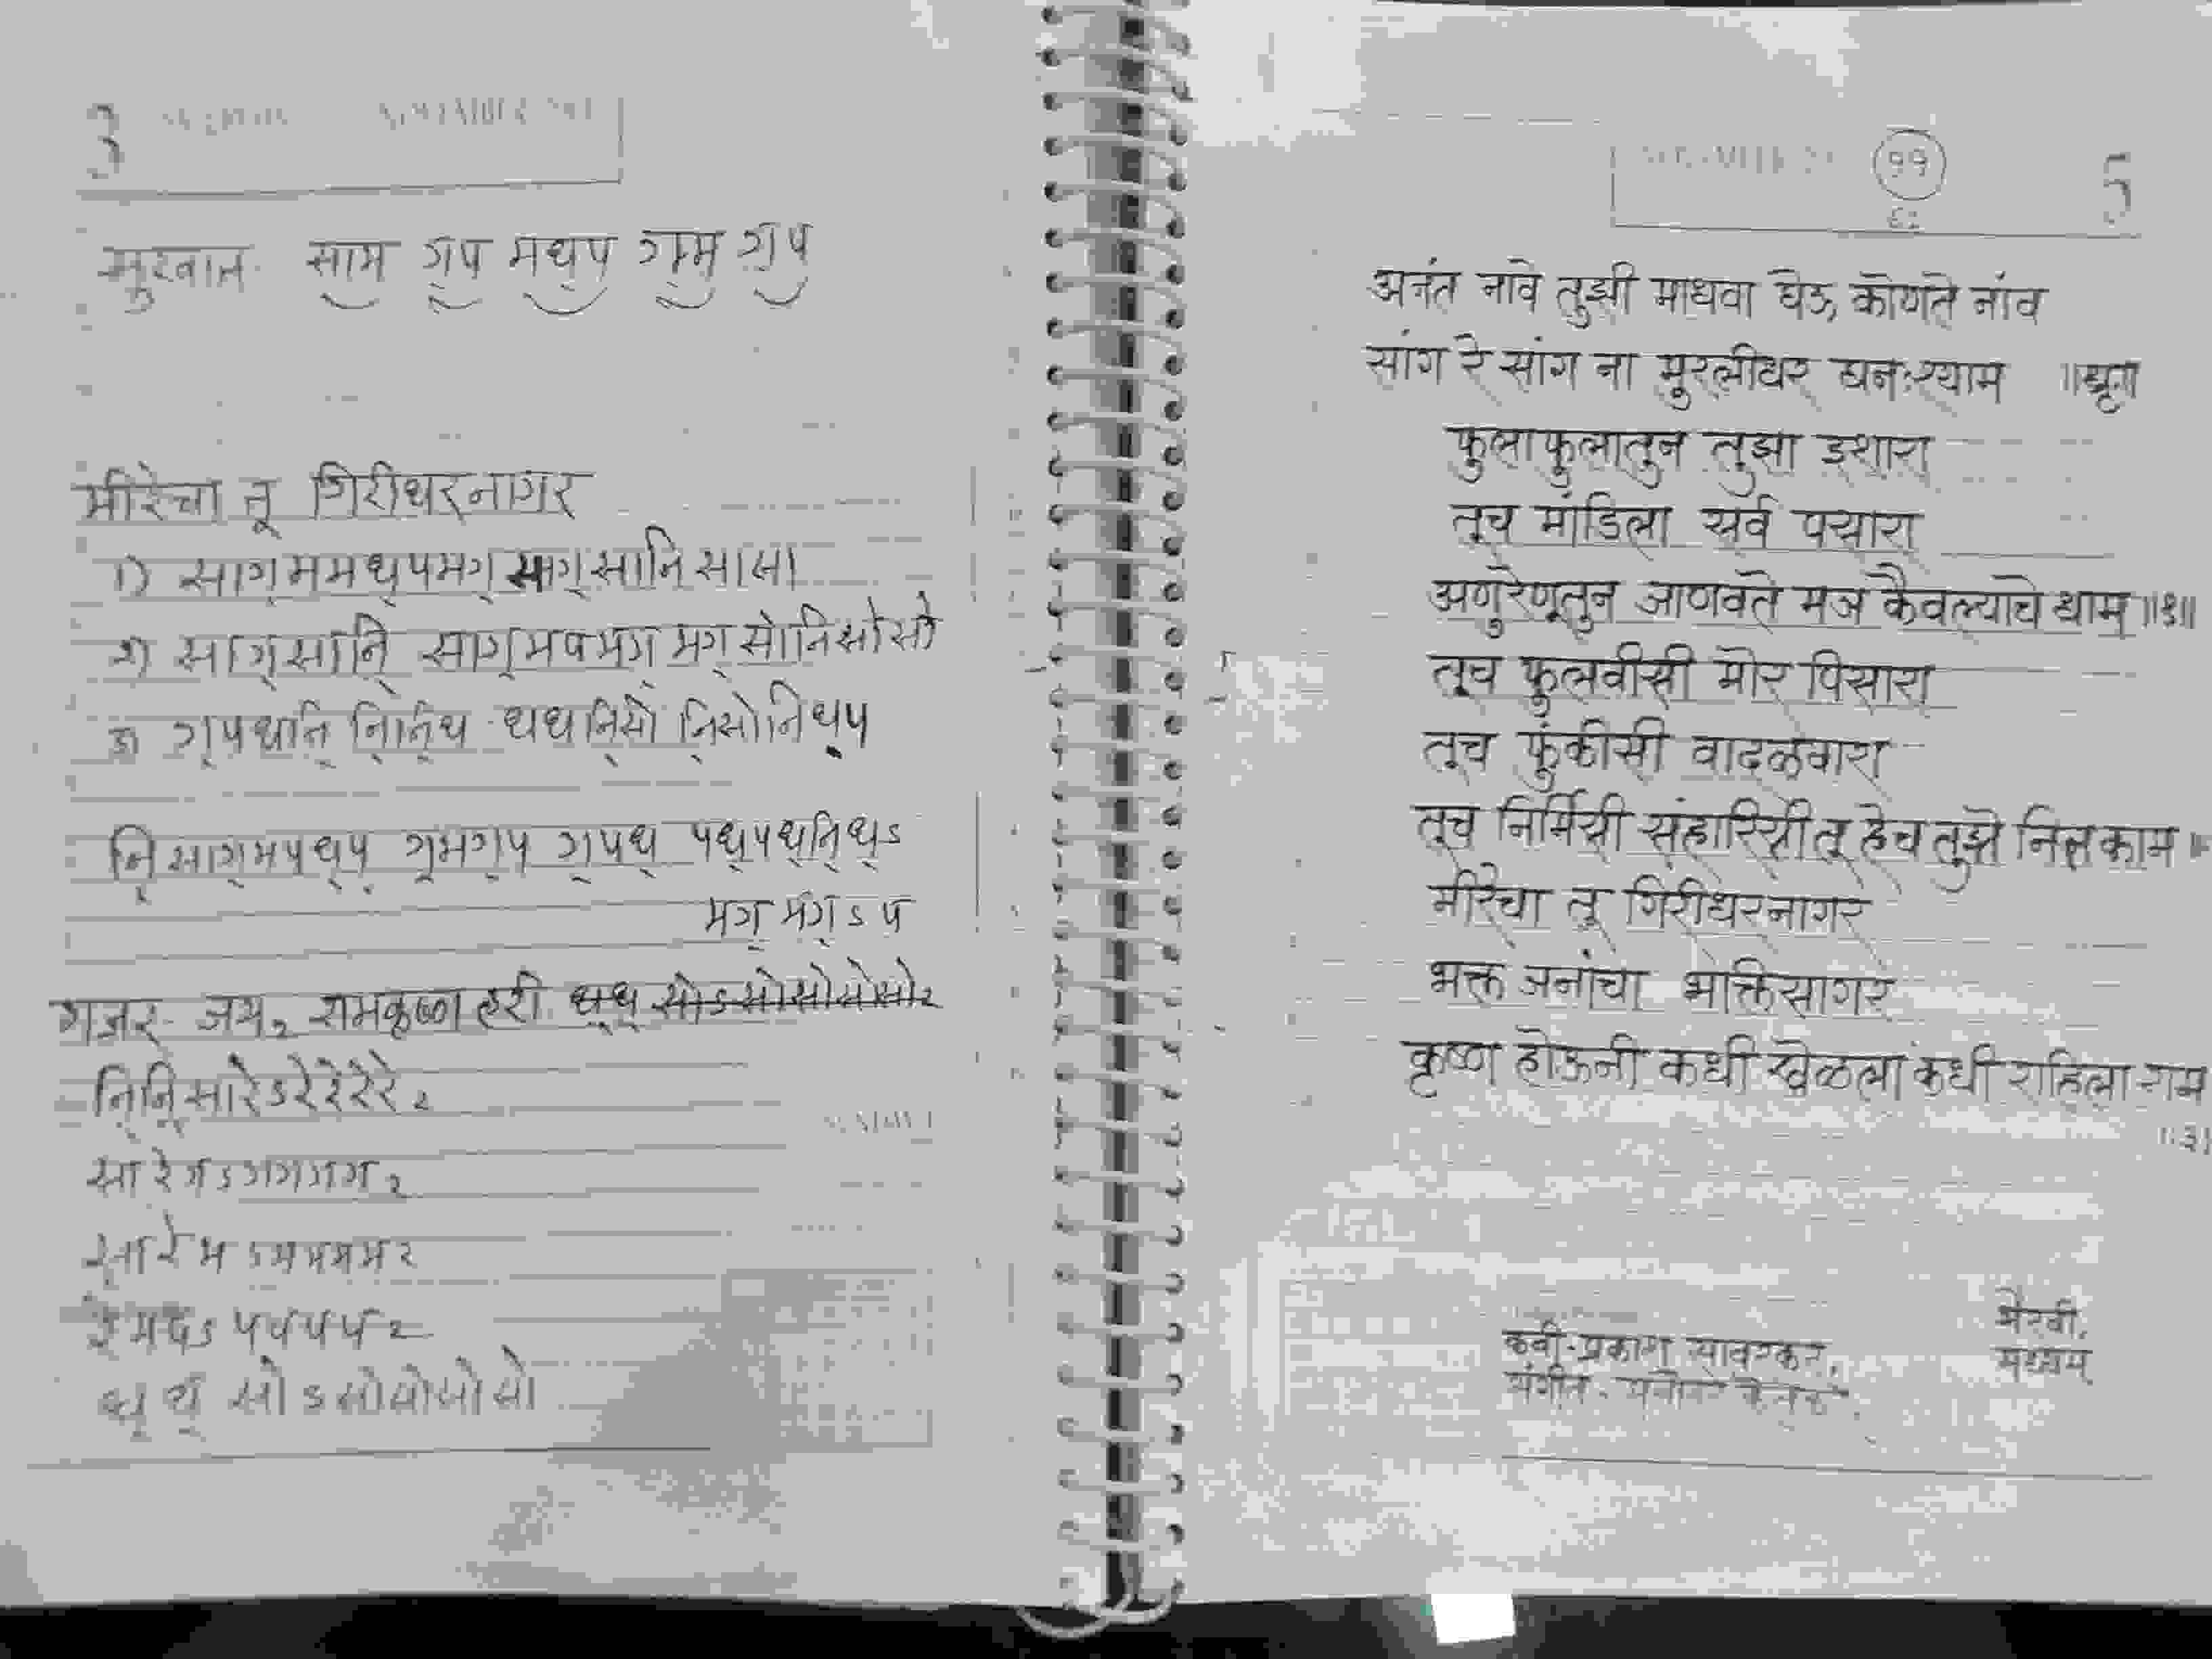 3
सुरवात साम ग॒प मध॒प ग॒म ग॒प
मीरेचा तू गिरीधरनागर
१) साग॒ममध॒पमग॒ साग॒सानि॒सासा
२) साग॒सानि॒ साग॒मपमग॒ मग॒सांनिसांसां
३) ग॒पधनि॒ नि॒नि॒ध धधनि॒सां नि॒सांनिध॒प
नि॒साग॒मपध॒प॒ ग॒मग॒प ग॒पध॒ पध॒पध॒नि॒ध॒ऽ
मग॒ मग॒ऽप
गजर- जय२ रामकृष्ण हरी
नि॒नि॒सारेऽरेरेरेरे२
सारेगऽगगगग२
सारेमऽमममम२
रेमपऽपपपप२
ध॒ ध॒ सांऽसांसांसांसां
99
5
अनंत नावे तुझी माधवा घेऊ कोणते नांव
सांग रे सांग ना मुरलीधर घनःश्याम ॥धृ॥
फुलाफुलातुन तुझा इशारा
तूच मांडिला सर्व पसारा
अणुरेणूतुन जाणवते मज कैवल्याचे धाम॥१॥
तूच फुलवीसी मोर पिसारा
तूच फुंकीसी वादळवारा
तूच निर्मिसी संहारिसी तू हेच तुझे नित काम॥
मीरेचा तू गिरीधरनागर
भक्त जनांचा भक्तिसागर
कृष्ण होऊनी कधी खेळला कधी राहिला राम
॥३॥
भैरवी,
कवी-प्रकाश सावरकर,
मध्यम
संगीत-